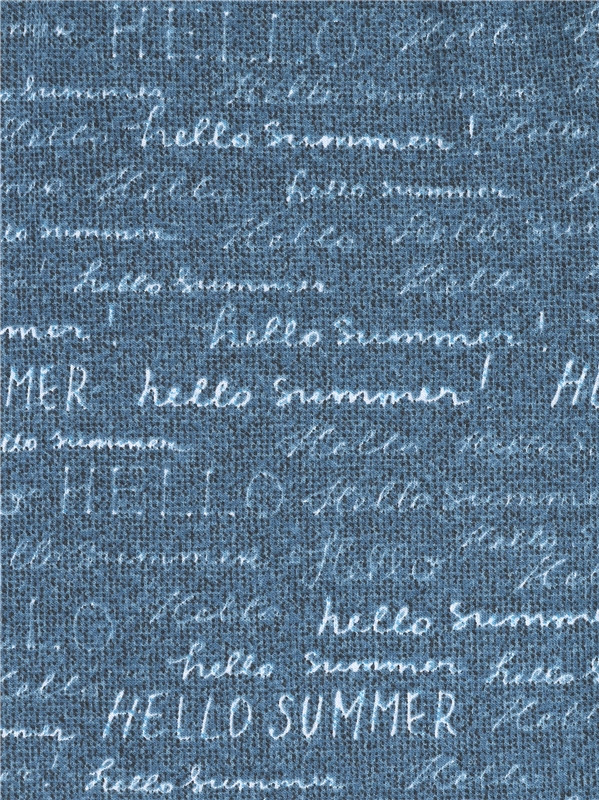 HELLO Hello
summer Hello summer
Hello hello summer! Hello
Hello hello summer
summer Hello Hello
hello summer Hello
mer! hello summer!
MER hello summer! H
llo summer Hello Hello
HELLO Hello summer
llo summer Hello Hello
LO Hello hello summ
hello summer hello
Hello
HELLO SUMMER Hello
mer
hello summer Hello